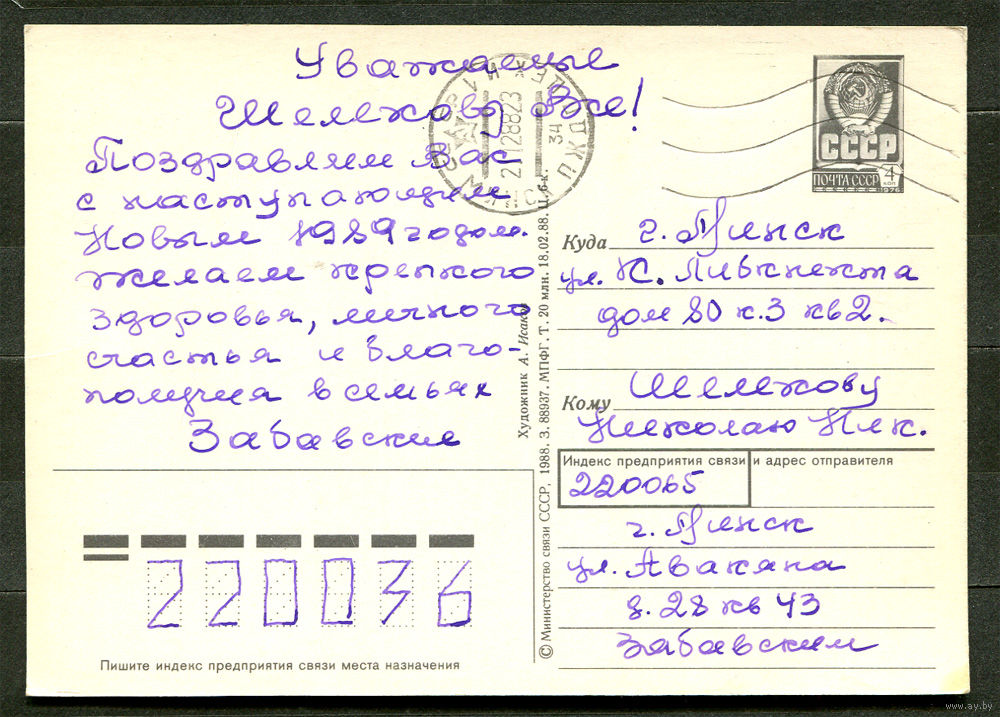 Уважаемые
Шележову Все!
Поздравляем Вас
с наступающим
Новым 1989 годом.
Желаем крепкого
здоровья, личного
счастья и благо-
получия в семьях
Забавские
СССР
ПОЧТА СССР 4 КОП
1976
Куда г. Минск
ул. К. Либкнехта
дом 80 к.3 кв 2.
Кому Шележову
Николаю Ник.
Индекс предприятия связи и адрес отправителя
220065
г. Минск
ул. Авакяна
д. 28 кв 43
Забавским
220036
Пишите индекс предприятия связи места назначения
© Министерство связи СССР, 1988. З. 88937. МПФГ. Т. 20 млн. 18.02.88. Ц. 6 к.
Художник А. Исаков
www.ay.by